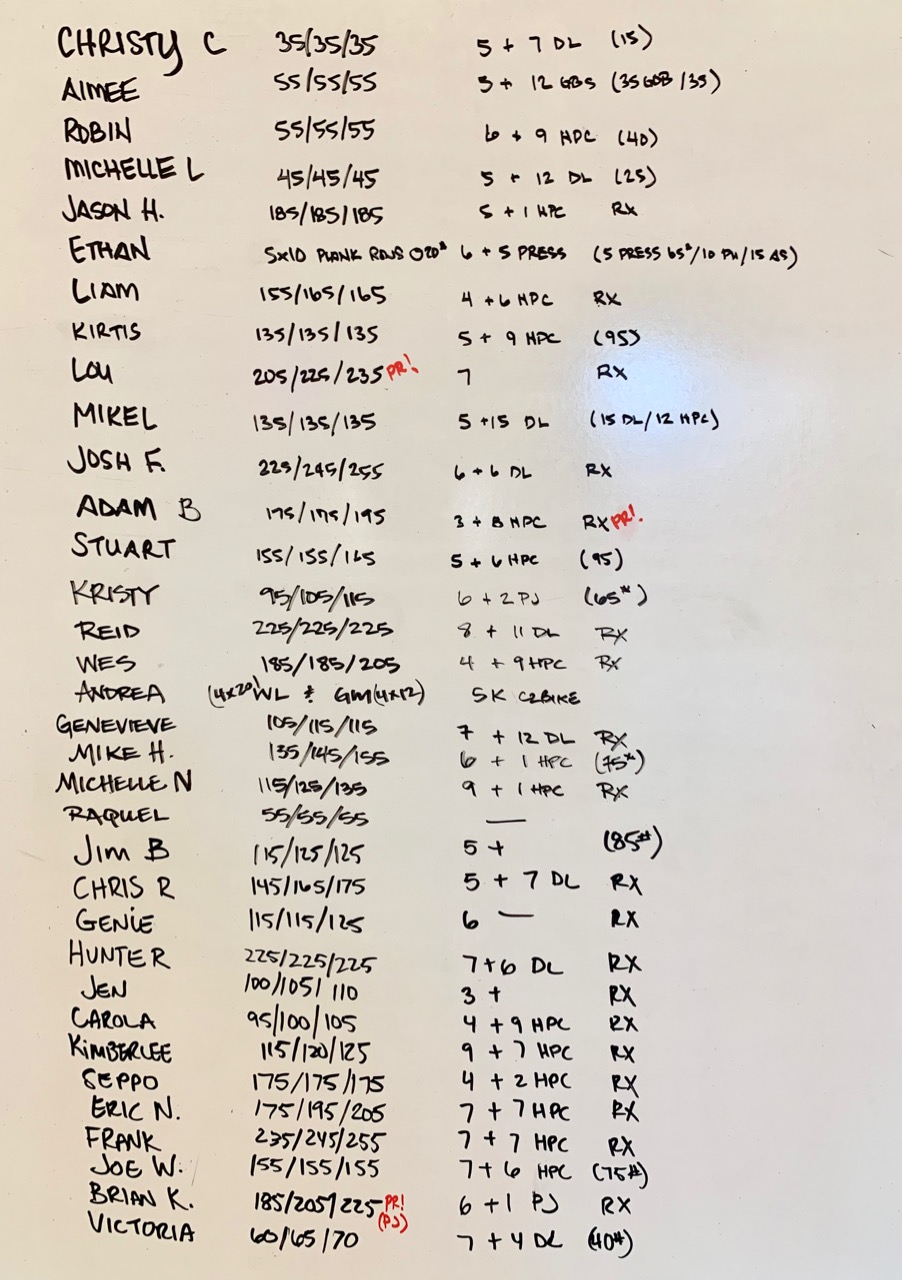 CHRISTY C 35/35/35 5 + 7 DL (15)
AIMEE 55/55/55 5 + 12 (35 /35)
ROBIN 55/55/55 6 + 9 HPC (40)
MICHELLE L 45/45/45 5 + 12 DL (25)
JASON H. 185/185/185 5 + 1 HPC RX
ETHAN 5x10 PLANK ROWS @20# 6 + 5 PRESS (5 PRESS 65#/10 PU/15 AS)
LIAM 155/165/165 4 + 6 HPC RX
KIRTIS 135/135/135 5 + 9 HPC (95)
LOU 205/225/235 PR! 7 RX
MIKEL 135/135/135 5 +15 DL (15 DL/12 HPC)
JOSH F. 225/245/255 6 + 6 DL RX
ADAM B 175/175/195 3 + 8 HPC RX PR!
STUART 155/155/165 5 + 6 HPC (95)
KRISTY 95/105/115 6 + 2 PJ (65#)
REID 225/225/225 8 + 11 DL RX
WES 185/185/205 4 + 9 HPC RX
ANDREA (4x20) WL & GM(4x12) 5K C2BIKE
GENEVIEVE 105/115/115 7 + 12 DL RX
MIKE H. 135/145/155 6 + 1 HPC (75#)
MICHELLE N 115/125/135 9 + 1 HPC RX
RAQUEL 55/55/55 —
JIM B 115/125/125 5 + (85#)
CHRIS R 145/165/175 5 + 7 DL RX
GENIE 115/115/125 6 — RX
HUNTER 225/225/225 7+6 DL RX
JEN 100/105/110 3 + RX
CAROLA 95/100/105 4 + 9 HPC RX
KIMBERLEE 115/120/125 9 + 7 HPC RX
SEPPO 175/175/175 4 + 2 HPC RX
ERIC N. 175/195/205 7 + 7 HPC RX
FRANK 235/245/255 7 + 7 HPC RX
JOE W. 155/155/155 7+ 6 HPC (75#)
BRIAN K. 185/205/225 PR! (PJ) 6 +1 PJ RX
VICTORIA 60/65/70 7 + 4 DL (40#)